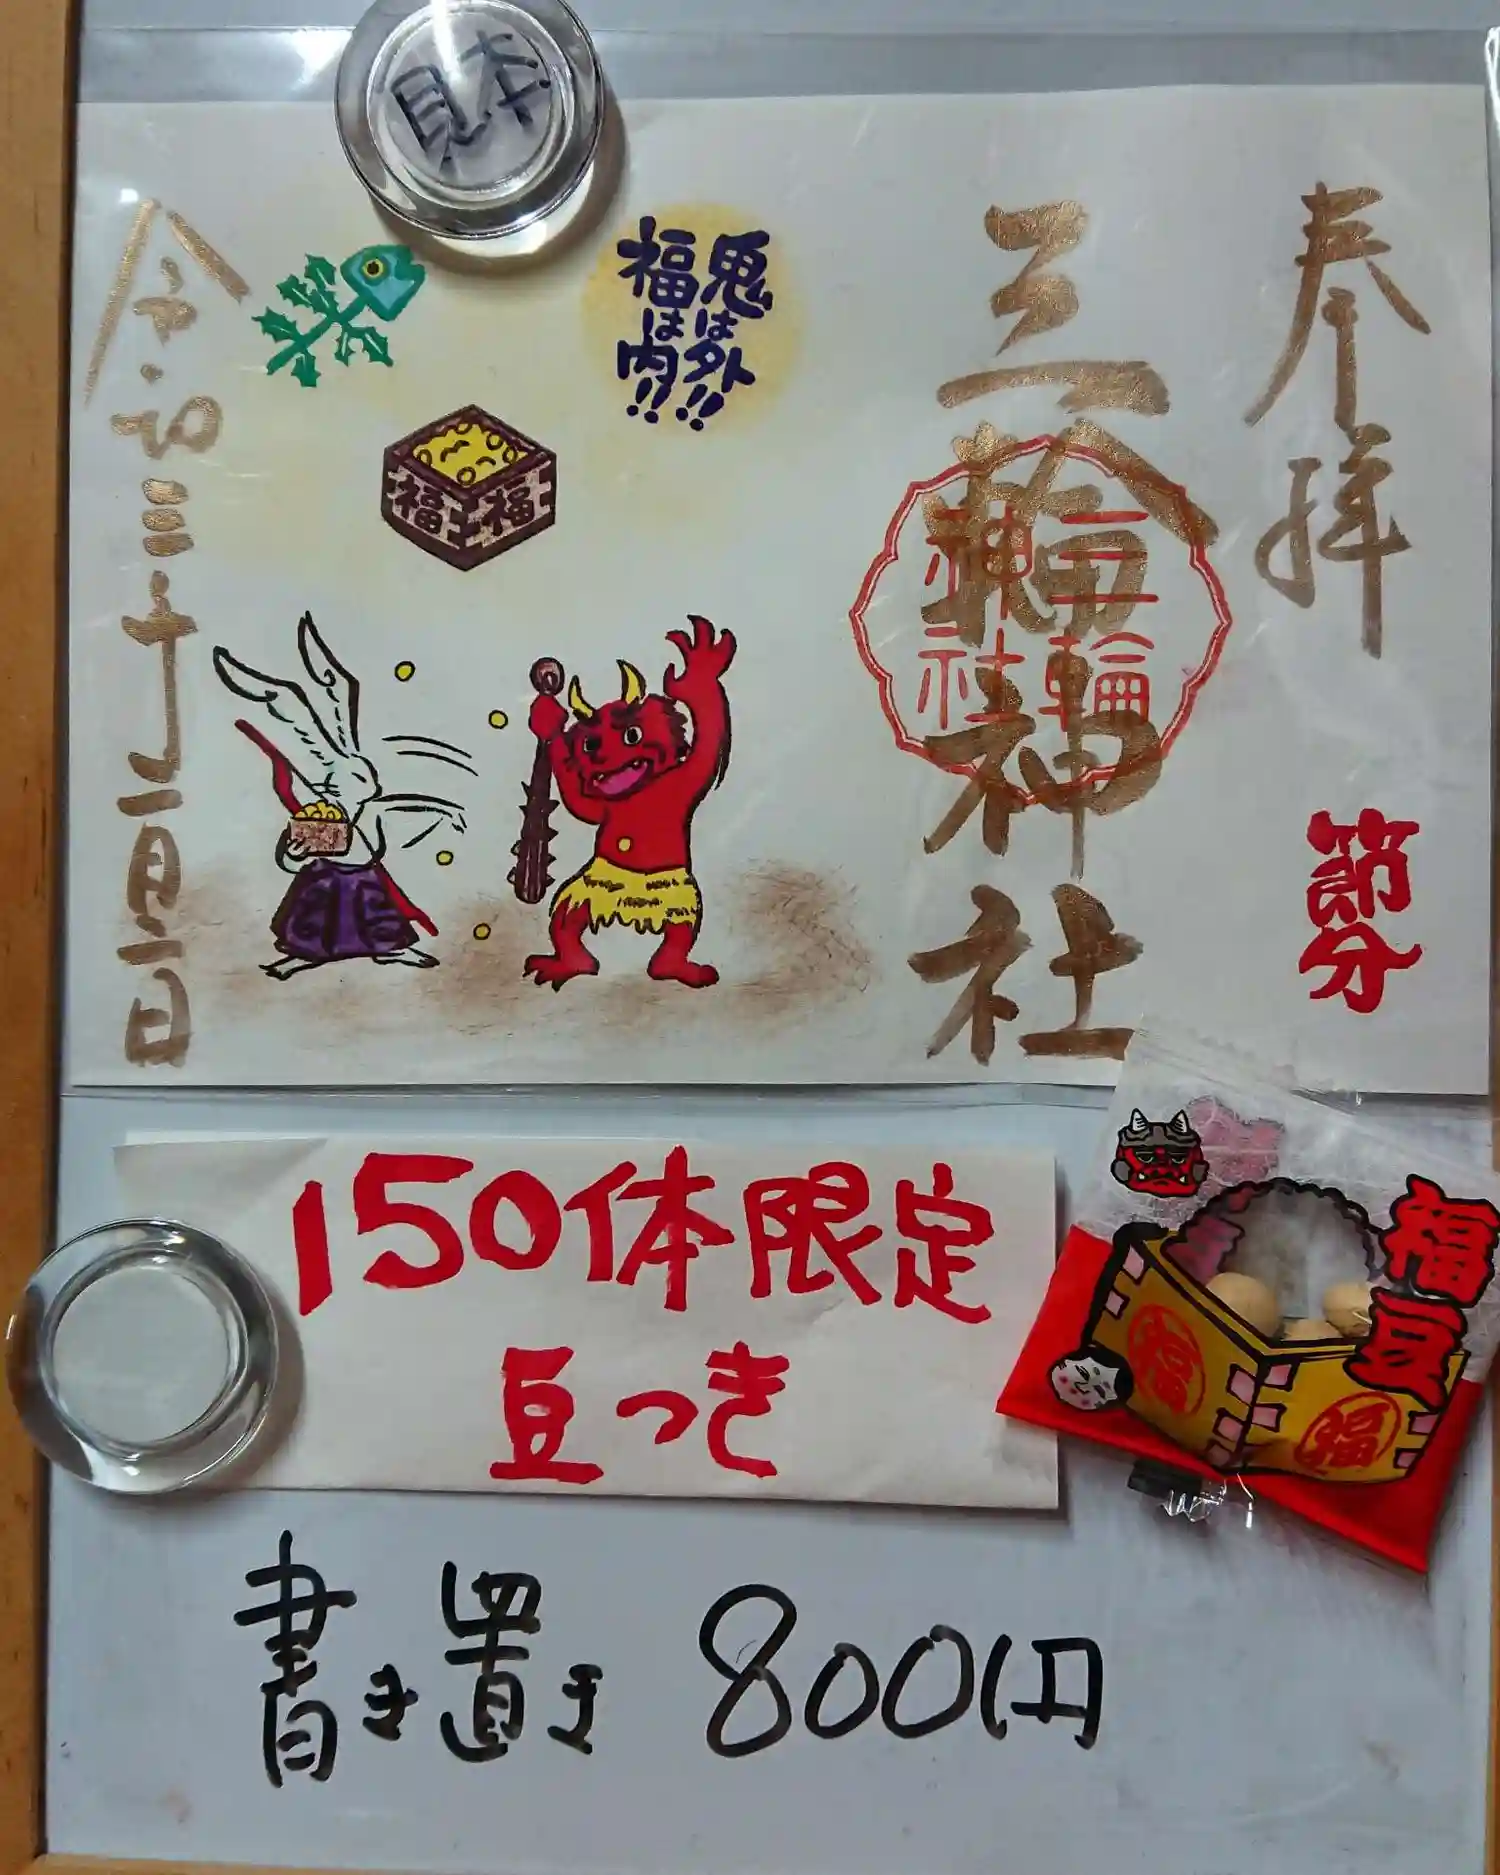 見本
奉拝
節分
三輪神社
三輪
神社
鬼は外!!
福は内!!
福 福
令和三年二月二日
150体限定
豆つき
福豆
福 福
書き置き 800円